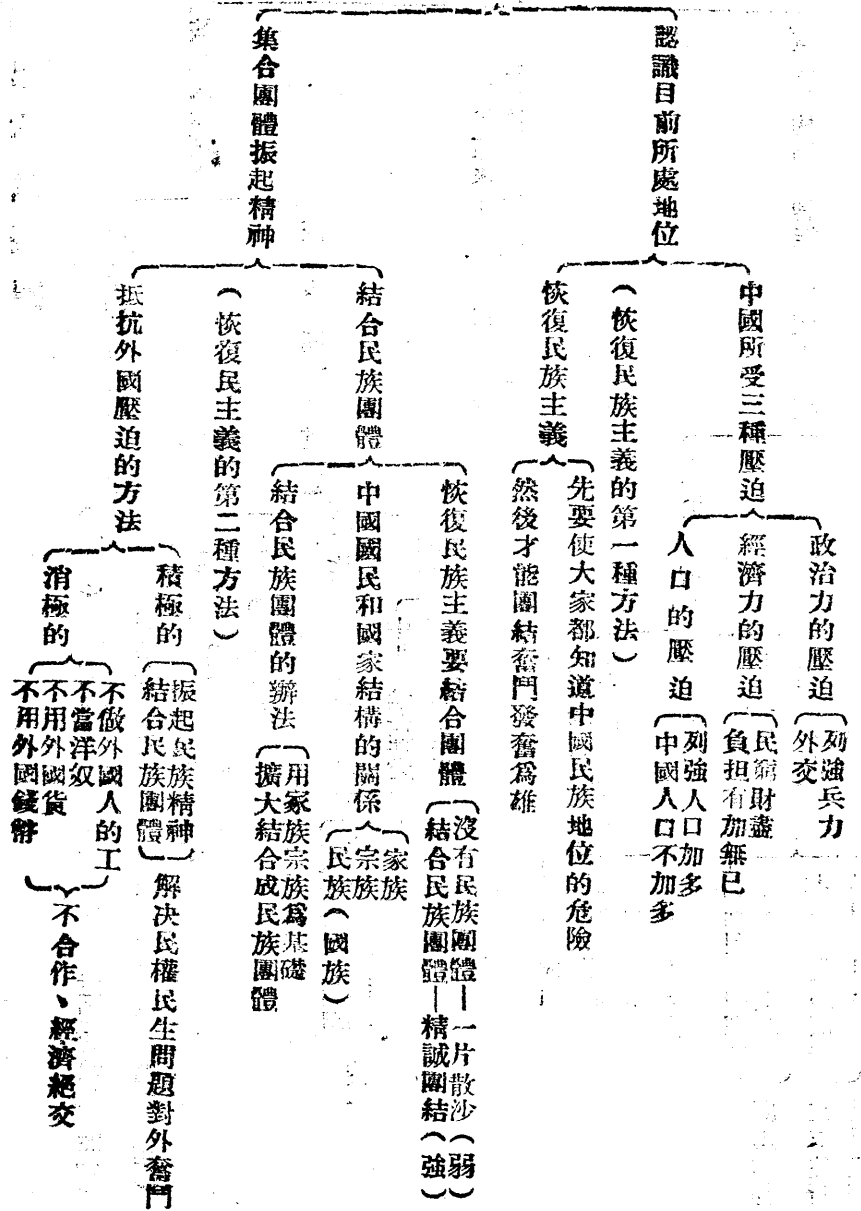 認識目前所處地位
中國所受三種壓迫
政治力的壓迫
列強兵力
外交
經濟力的壓迫
民窮財盡
負担有加無已
人口的壓迫
列強人口加多
中國人口不加多
(恢復民族主義的第一種方法)
恢復民族主義
先要使大家都知道中國民族地位的危險
然後才能團結奮鬥發奮爲雄
集合團體振起精神
結合民族團體
恢復民族主義要結合團體
沒有民族團體—一片散沙(弱)
結合民族團體—精誠團結(強)
中國國民和國家結構的關係
家族
宗族
民族(國族)
結合民族團體的辦法
用家族宗族爲基礎
擴大結合成民族團體
(恢復民主義的第二種方法)
抵抗外國壓迫的方法
積極的
振起民族精神
結合民族團體
解决民權民生問題對外奮鬥
消極的
不做外國人的工
不當洋奴
不用外國貨
不用外國錢幣
不合作、經濟絕交